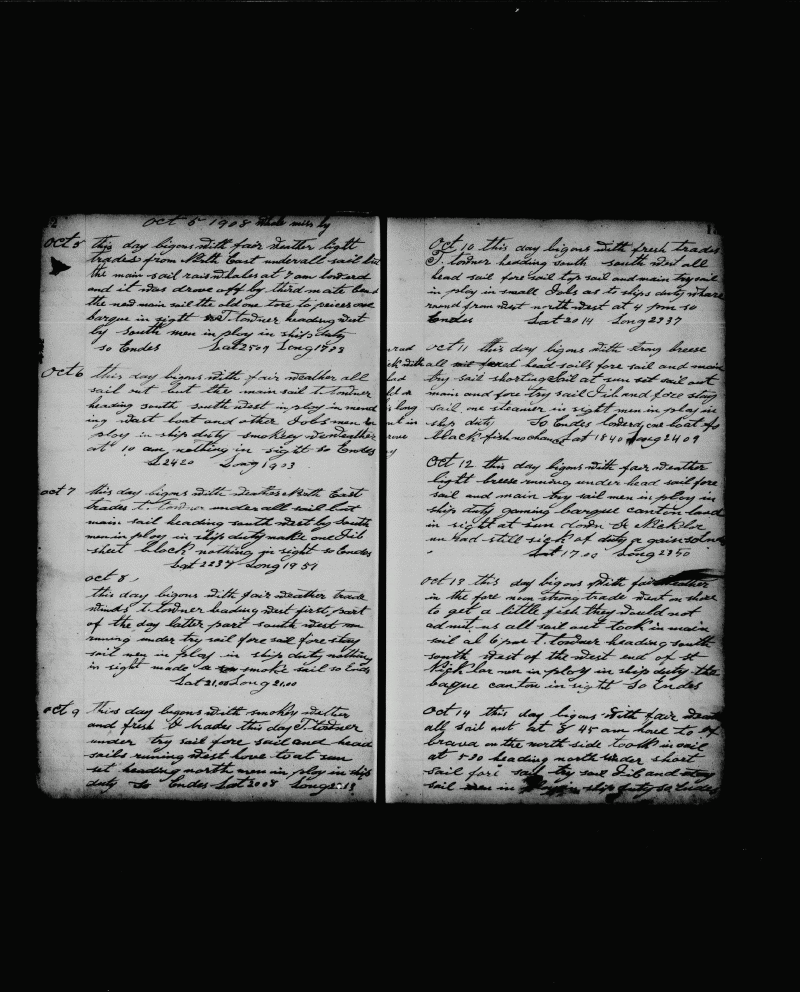 Oct 5 1908
Oct 5 this day bigons with fair weather light
trades from North East under all sail but
the main sail rais whales at 7 am lowerd
and it was drove off by third mate
the new main sail the old one tore to peices one
barque in sight T. towner heading West
by South men in ploy in ship duty
so Endes Lat 2509 Long 1703
Oct 6 this day bigons with fair weather all
sail out but the main sail t. towner
heading south south west in ploy in mend
ing wast boat and other Jobs men in
ploy in ship duty smokey weather
at 10 am nothing in sight so Endes
L 2420 Long 1903
Oct 7 this day bigons with weather North East
trades t. towner under all sail but
main sail heading south west by South
men in ploy in ship duty make one Jib
sheet block nothing in sight so Endes
Lat 2237 Long 1957
Oct 8
this day bigons with fair weather trade
winds t. towner heading west first part
of the day latter part south west
runing under try sail fore sail fore stay
sail men in ploy in ship duty nothing
in sight made a smoke sail so Ends
Lat 21.00 Long 21.00
Oct 9 this day bigons with smokey wether
and fresh trades this day T. towner
under try sail fore sail and head
sails runing West hove to at sun
set heading north men in ploy in ship
duty so Endes Lat 2008
Oct 10 this day bigons with fresh trades
T. towner heading south south west all
head sail fore sail top sail and main try sail
in ploy in small Jobs as to ships duty
round from West north West at 4 pm so
Endes Lat 2014 Long 2337
Oct 11 this day bigons with strong breese
all head sails fore sail and main
try sail shorting sail at sun set sail out
main and fore try sail Jib and fore stay
sail one steamer in sight men in ploy in
ship duty So Endes lowerd one boat for
black fish no chance Lat 1840 Long 2409
Oct 12 this day bigons with fair weather
light breese runing under head sail fore
sail and main try sail men in ploy in
ship duty gaming barque canton land
in sight at sun down
Lat 17.00 Long 2350
Oct 13 this day bigons with fair weather
in the fore noon strong trade went on shore
to get a little fish they would not
admit us all sail out took in main
sail at 6 pm t. towner heading south
south West of the West end of st
Nick lar men in ploy in ship duty the
barque canton in sight So Endes
Oct 14 this day bigons with fair
all sail out at 8 45 am hove to of
brava on the north side took in sail
at 5 30 heading north under short
sail fore sail try sail Jib and stay
sail men in ploy in ship duty so Endes